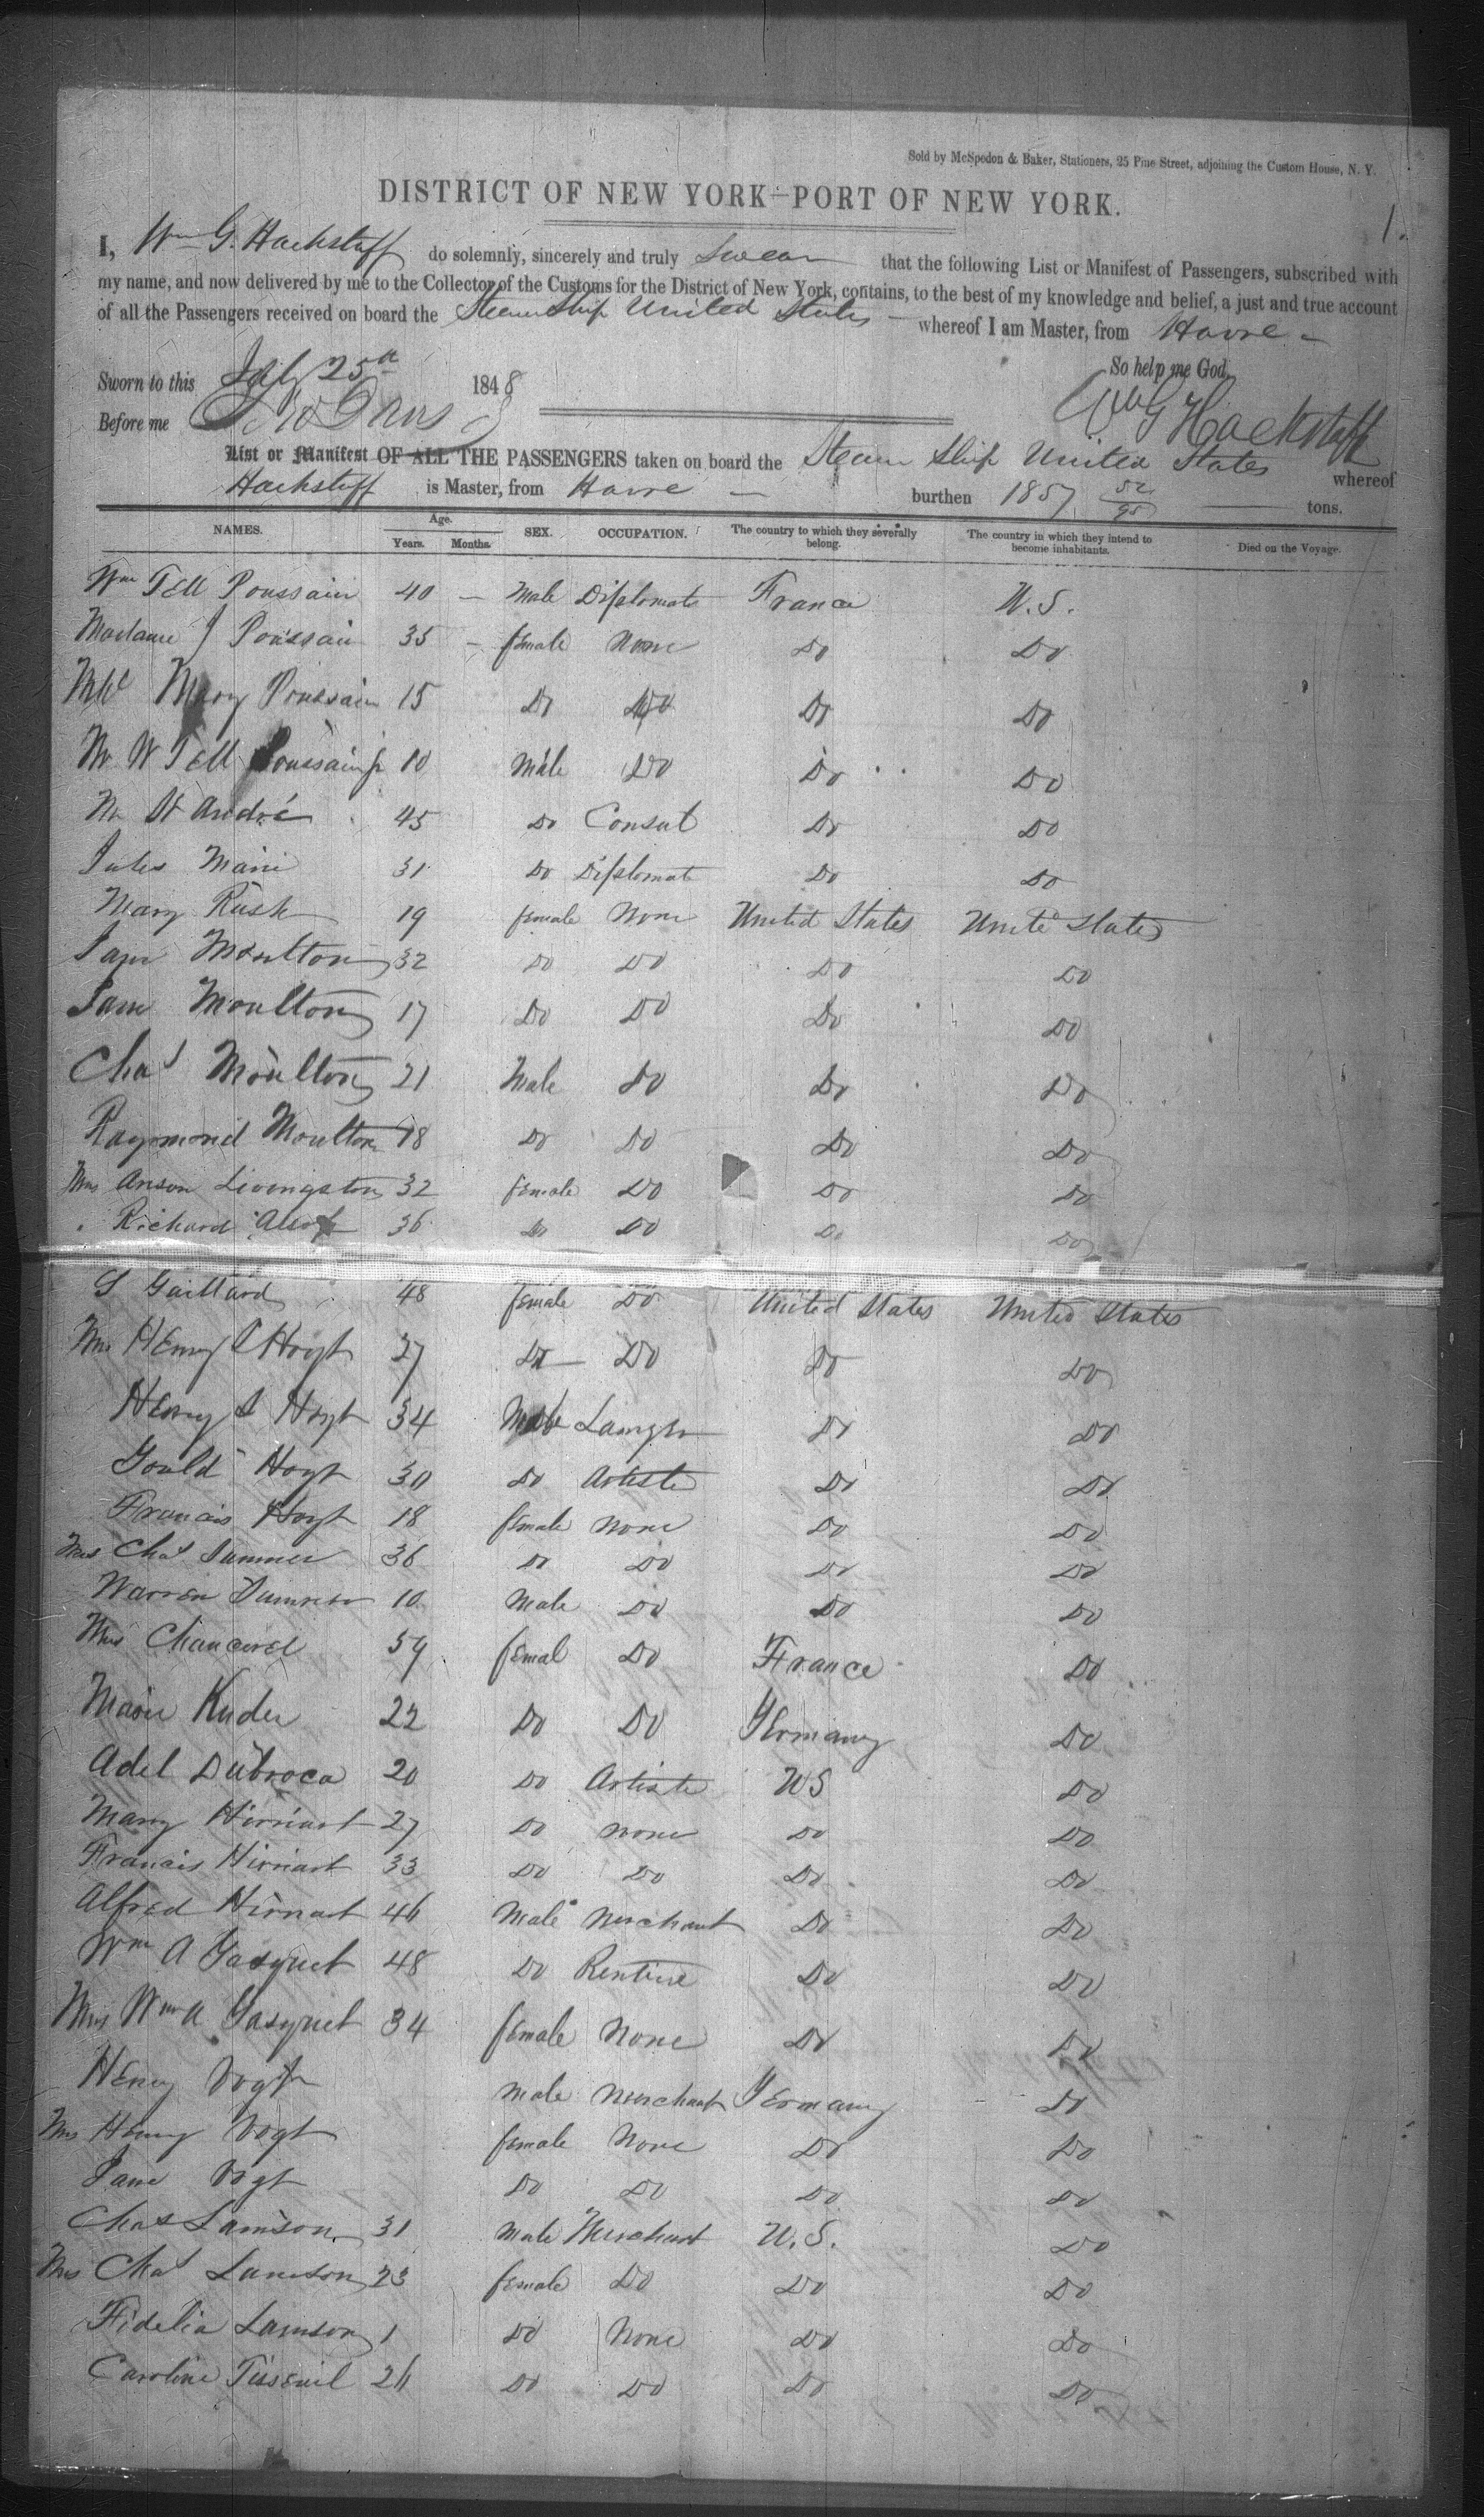 Sold by McSpedon & Baker, Stationers, 25 Pine Street, adjoining the Custom House, N. Y.
DISTRICT OF NEW YORK—PORT OF NEW YORK.
1.
I, Wm G. Hackstaff do solemnly, sincerely and truly Swear that the following List or Manifest of Passengers, subscribed with
my name, and now delivered by me to the Collector of the Customs for the District of New York, contains, to the best of my knowledge and belief, a just and true account
of all the Passengers received on board the Steam Ship United States — whereof I am Master, from Havre —
So help me God,
Sworn to this July 25th 1848
Before me
Wm G Hackstaff
List or Manifest OF ALL THE PASSENGERS taken on board the Steam Ship United States whereof
Hackstaff is Master, from Havre — burthen 1857 52/95 tons.
NAMES. Age. Years. Months. SEX. OCCUPATION. The country to which they severally belong. The country in which they intend to become inhabitants. Died on the Voyage.
Wm Tell Poussain 40 — Male Diplomate France U.S.
Madame J Poussain 35 — female None Do Do
Mlle Mary Poussain 15 Do Do Do Do
Mr W Tell Poussain jr 10 Male Do Do Do
Mr St André 45 Do Consul Do Do
Jules Marie 31 Do Diplomat Do Do
Mary Rush 19 female None United States United States
Moulton 32 Do Do Do Do
Moulton 17 Do Do Do Do
Chas Moulton 21 Male Do Do Do
Raymond Moulton 18 Do Do Do Do
Mrs Anson Livingston 32 female Do Do Do
" Richard Alsop 36 Do Do Do Do
S Gaillard 48 female Do United States United States
Mrs Henry S Hoyt 27 Do Do Do Do
Henry S Hoyt 34 Male Lawyer Do Do
Gould Hoyt 30 Do Artiste Do Do
Francis Hoyt 18 female None Do Do
Mrs Chas Sumner 36 Do Do Do Do
Warren Sumner 10 Male Do Do Do
Mrs Chancerel 54 femal Do France Do
Marie Kuder 22 Do Do Germany Do
Adel Dubroca 20 Do Artiste US Do
Mary Hirriart 27 Do None Do Do
Francis Hirriart 33 Do Do Do Do
Alfred Hirriart 46 Male Merchant Do Do
Wm A Gasquet 48 Do Rentire Do Do
Mrs Wm A Gasquet 34 female None Do Do
Henry Vogt male Merchant Germany Do
Mrs Henry Vogt female None Do Do
Jane Vogt Do Do Do Do
Chas Lamson 31 Male Merchant U.S. Do
Mrs Chas Lamson 23 female Do Do Do
Fidelia Lamson 1 Do None Do Do
Caroline 26 Do Do Do Do